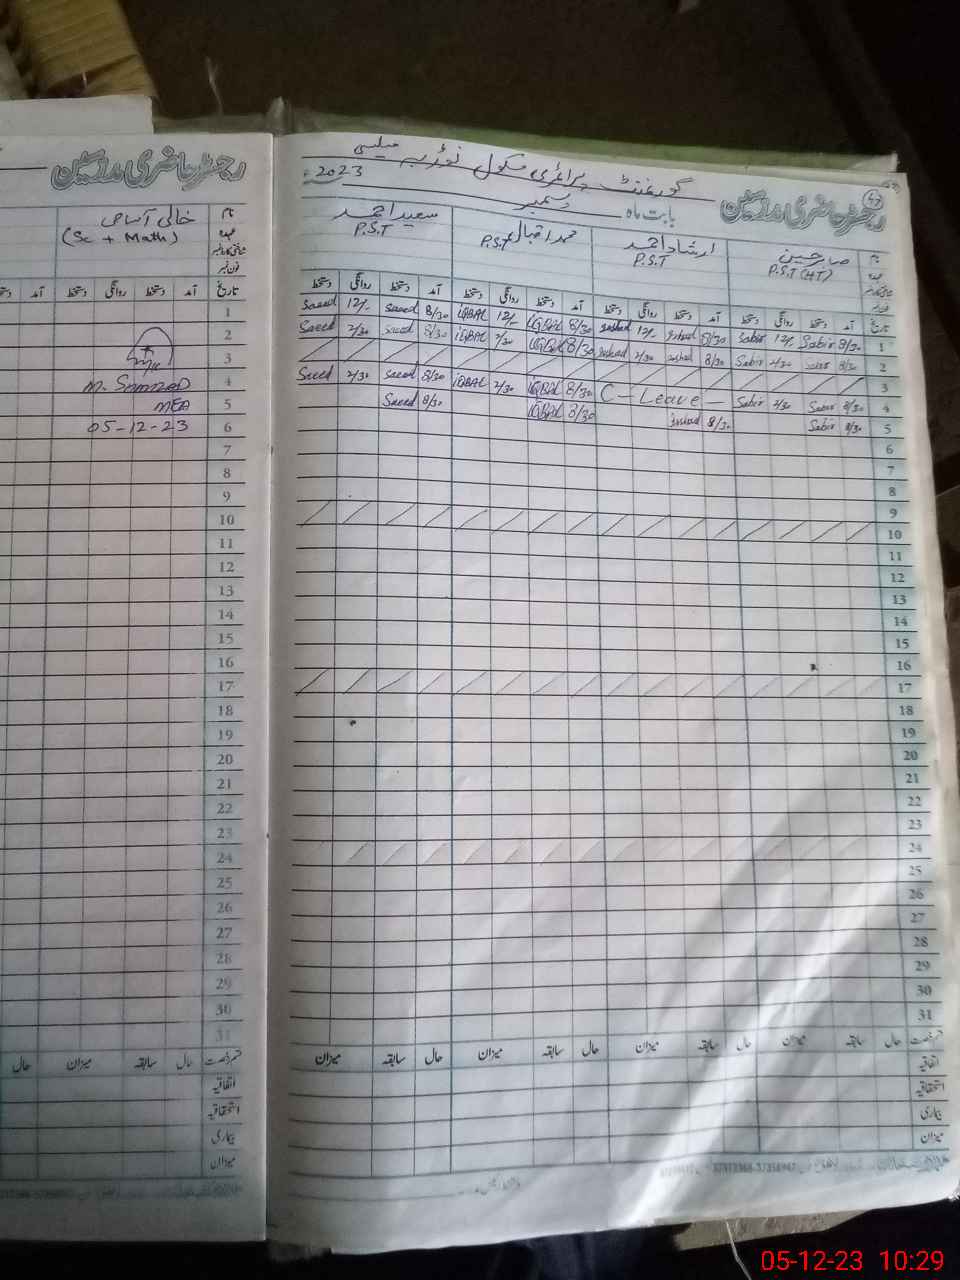 رجسٹر حاضری مدرسین
گورنمنٹ پرائمری سکول میلسی
بابت ماہ دسمبر 2023ء
47
نام صابر حسین ارشاد احمد محمد اقبال سعید احمد
عہدہ P.S.T (HT) P.S.T P.S.T P.S.T
تاریخ آمد دستخط روانگی دستخط آمد دستخط روانگی دستخط آمد دستخط روانگی دستخط آمد دستخط روانگی دستخط
1 8/30 Sabir 12/- Sabir 8/30 Irshad 12/- Irshad 8/30 iQBAL 12/- iQBAL 8/30 Saeed 12/- Saeed
2 8/30 Sabir 2/30 Sabir 8/30 Irshad 2/30 Irshad 8/30 iQBAL 2/30 iQBAL 8/30 Saeed 2/30 Saeed
3
4 8/30 Sabir 2/30 Sabir C - Leave - 8/30 iQBAL 2/30 iQBAL 8/30 Saeed 2/30 Saeed
5 8/30 Sabir 8/30 Irshad 8/30 iQBAL 8/30 Saeed
6
7
8
9
10
11
12
13
14
15
16
17
18
19
20
21
22
23
24
25
26
27
28
29
30
31
قسم رخصت حال سابقہ میزان حال سابقہ میزان حال سابقہ میزان حال سابقہ میزان
اتفاقیہ
استحقاقیہ
بیماری
میزان
رجسٹر حاضری مدرسین
نام خالی آسامی
عہدہ (Sc + Math)
شناختی کارڈ نمبر
فون نمبر
تاریخ آمد دستخط روانگی دستخط آمد
1
2
3
4
5 MEA
6 05-12-23
7
8
9
10
11
12
13
14
15
16
17
18
19
20
21
22
23
24
25
26
27
28
29
30
31
قسم رخصت حال سابقہ میزان حال
اتفاقیہ
استحقاقیہ
بیماری
میزان
05-12-23 10:29